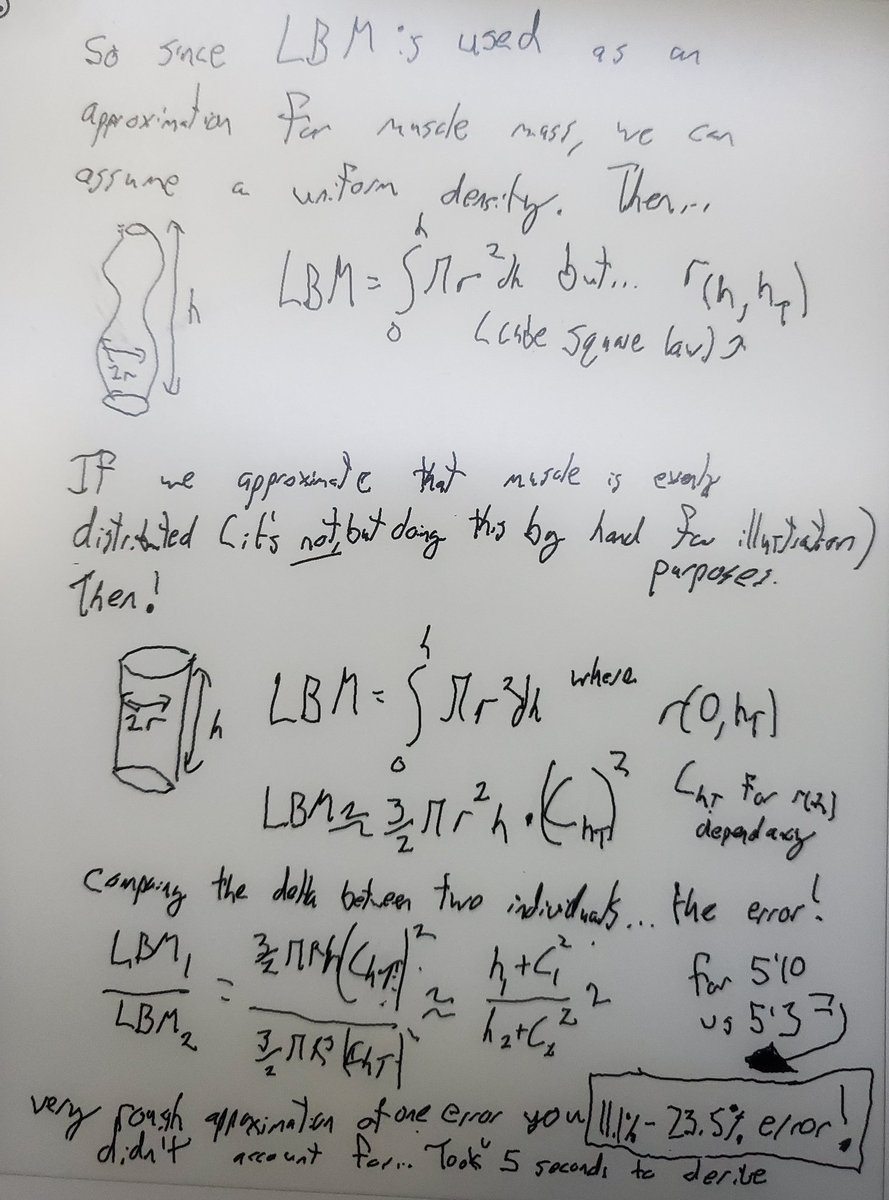 So since LBM is used as an
approximation for muscle mass, we can
assume a uniform density. Then...
h
2r
LBM = ∫₀ʰ πr²dh but... r(h, h_T)
(cube square law)
If we approximate that muscle is evenly
distributed (it's not, but doing this by hand for illustration)
purposes.
Then!
2r
h
LBM = ∫₀ʰ πr²dh where r(0, h_T)
LBM ≈ 3/2 πr²h · (C_hT)² C_hT for r(h)
dependancy
Comparing the delta between two individuals... the error!
LBM₁/LBM₂ = ≈ h₁+C₁²/h₂+C₂² for 5'10
vs 5'3
very rough approximation of one error you 11.1% - 23.5% error!
didn't account for... Took 5 seconds to derive